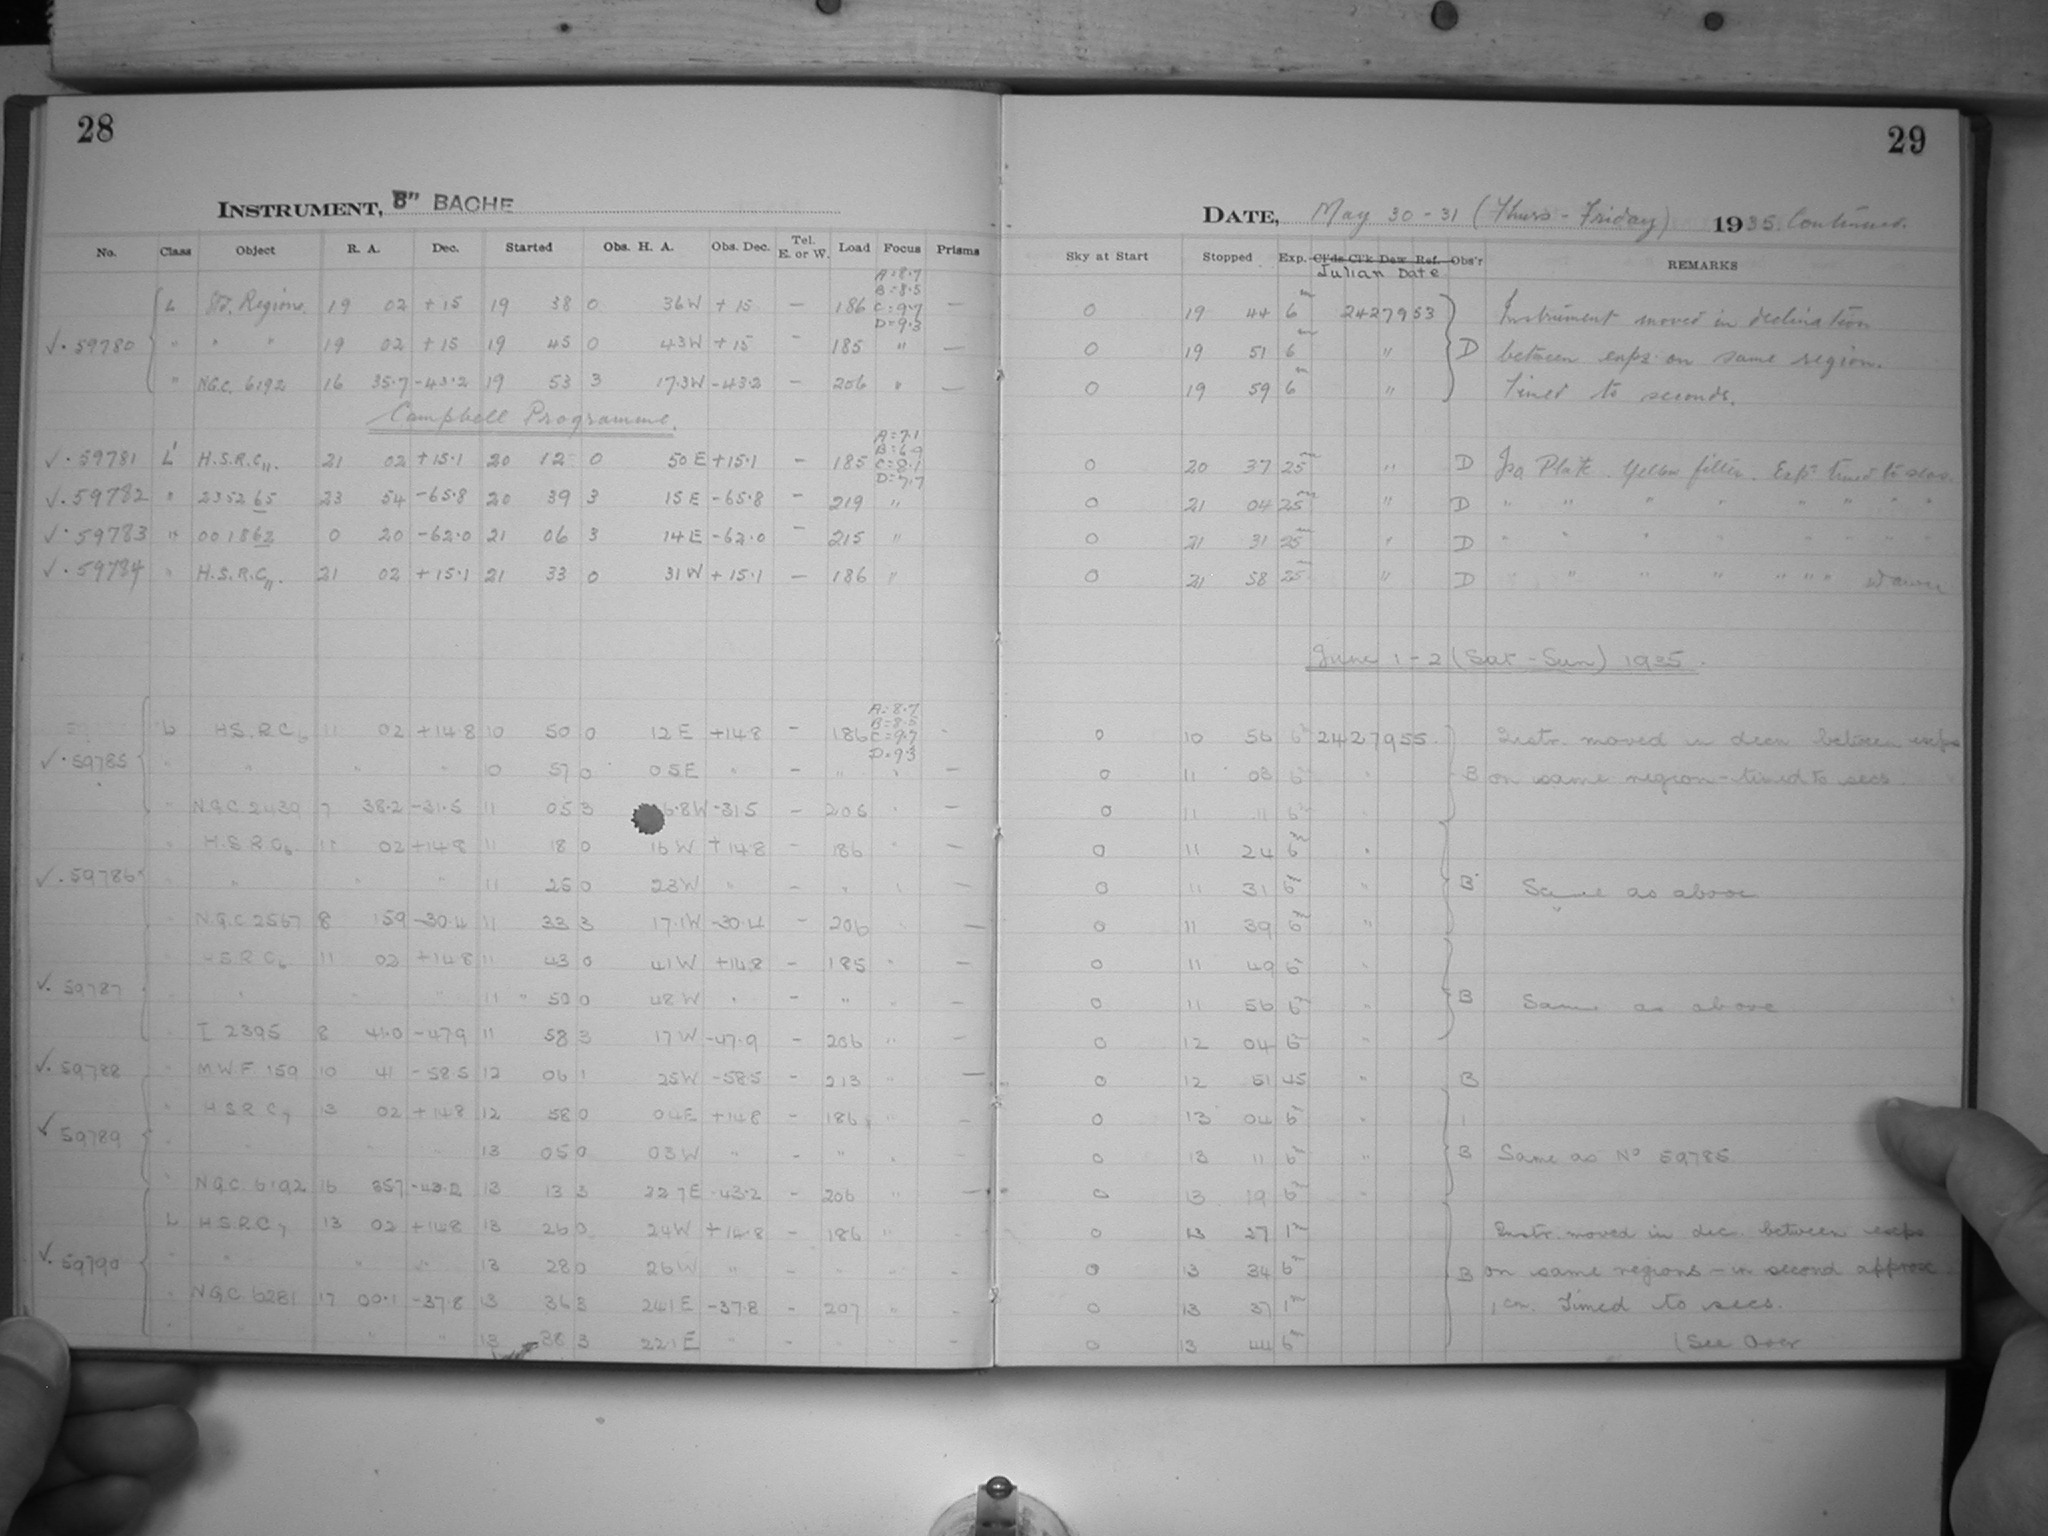 28
INSTRUMENT, 8" BACHE
No. Class Object R. A. Dec. Started Obs. H. A. Obs. Dec. Tel. E. or W. Load Focus Prisms
A=8.7
B=8.5
L Std. Regions 19 02 +15 19 38 0 36W +15 — 186 C=9.7 —
D=9.3
✓.59780 " " " 19 02 +15 19 45 0 43W +15 — 185 " —
" N.G.C. 6192 16 35.7 -43.2 19 53 3 17.3W -43.2 — 206 " —
Campbell Programme.
A=7.1
B=6.9
✓.59781 L' H.S.R.C11. 21 02 +15.1 20 12 0 50E +15.1 — 185 C=8.1
D=7.7
✓.59782 " 235265 23 54 -65.8 20 39 3 15E -65.8 — 219 "
✓.59783 " 001862 0 20 -62.0 21 06 3 14E -62.0 — 215 "
✓.59784 " H.S.R.C11. 21 02 +15.1 21 33 0 31W +15.1 — 186 "
A=8.7
B=8.5
L H.S.R.C6 11 02 +14.8 10 50 0 12E +14.8 — 186 C=9.7
D=9.3
✓.59785 " " " " 10 57 0 05E " — " " —
" N.G.C. 2439 7 38.2 -31.5 11 05 3 6.8W -31.5 — 206 " —
" H.S.R.C6. 11 02 +14.8 11 18 0 16W +14.8 — 186 " —
✓.59786 " " " " 11 25 0 23W " — " " —
" N.G.C. 2567 8 15.9 -30.4 11 33 3 17.1W -30.4 — 206 " —
" H.S.R.C6 11 02 +14.8 11 43 0 41W +14.8 — 185 " —
✓. 59787 " " " " 11 50 0 48W " — " " —
" I 2395 8 41.0 -47.9 11 58 3 17W -47.9 — 206 " —
✓. 59788 " M.W.F. 159 10 41 -58.5 12 06 1 25W -58.5 — 213 " —
" H.S.R.C7 13 02 +14.8 12 58 0 04E +14.8 — 186 " —
✓ 59789 " " " " 13 05 0 03W " — " " —
" N.G.C. 6192 16 35.7 -43.2 13 13 3 22.7E -43.2 — 206 " —
L H.S.R.C7 13 02 +14.8 13 26 0 24W +14.8 — 186 " -
✓. 59790 " " " " 13 28 0 26W " - " " -
" N.G.C. 6281 17 00.1 -37.8 13 36 3 24.1E -37.8 — 207 " -
" " " 13 38 3 22.1E " -
29
DATE, May 30-31 (Thurs-Friday) 1935 Continued.
Sky at Start Stopped Exp. Cl'ds Cl'k Dew Ref. Obs'r REMARKS
Julian Date
0 19 44 6m 2427953 Instrument moved in declination
0 19 51 6m " D between exps. on same region.
0 19 59 6m " Timed to seconds.
0 20 37 25m " D Iso. Plate. Yellow filter. Exp. timed to secs.
0 21 04 25m " D " " " " " " " "
0 21 31 25m " D " " " " " " " "
0 21 58 25m " D " " " " " " " Dawn
June 1-2 (Sat-Sun) 1935.
0 10 56 6m 2427955 Instr. moved in decn between exps
0 11 03 6m " B on same region - timed to secs.
0 11 11 6m "
0 11 24 6m "
0 11 31 6m " B Same as above
0 11 39 6m "
0 11 49 6m "
0 11 56 6m " B Same as above
0 12 04 6m "
0 12 51 45 " B
0 13 04 6m "
0 13 11 6m " B Same as No 59785
0 13 19 6m "
0 13 27 1m Instr. moved in dec. between exps
0 13 34 6m B on same regions - in second approx
0 13 37 1m 1 cm. Timed to secs.
0 13 44 6m (See Over